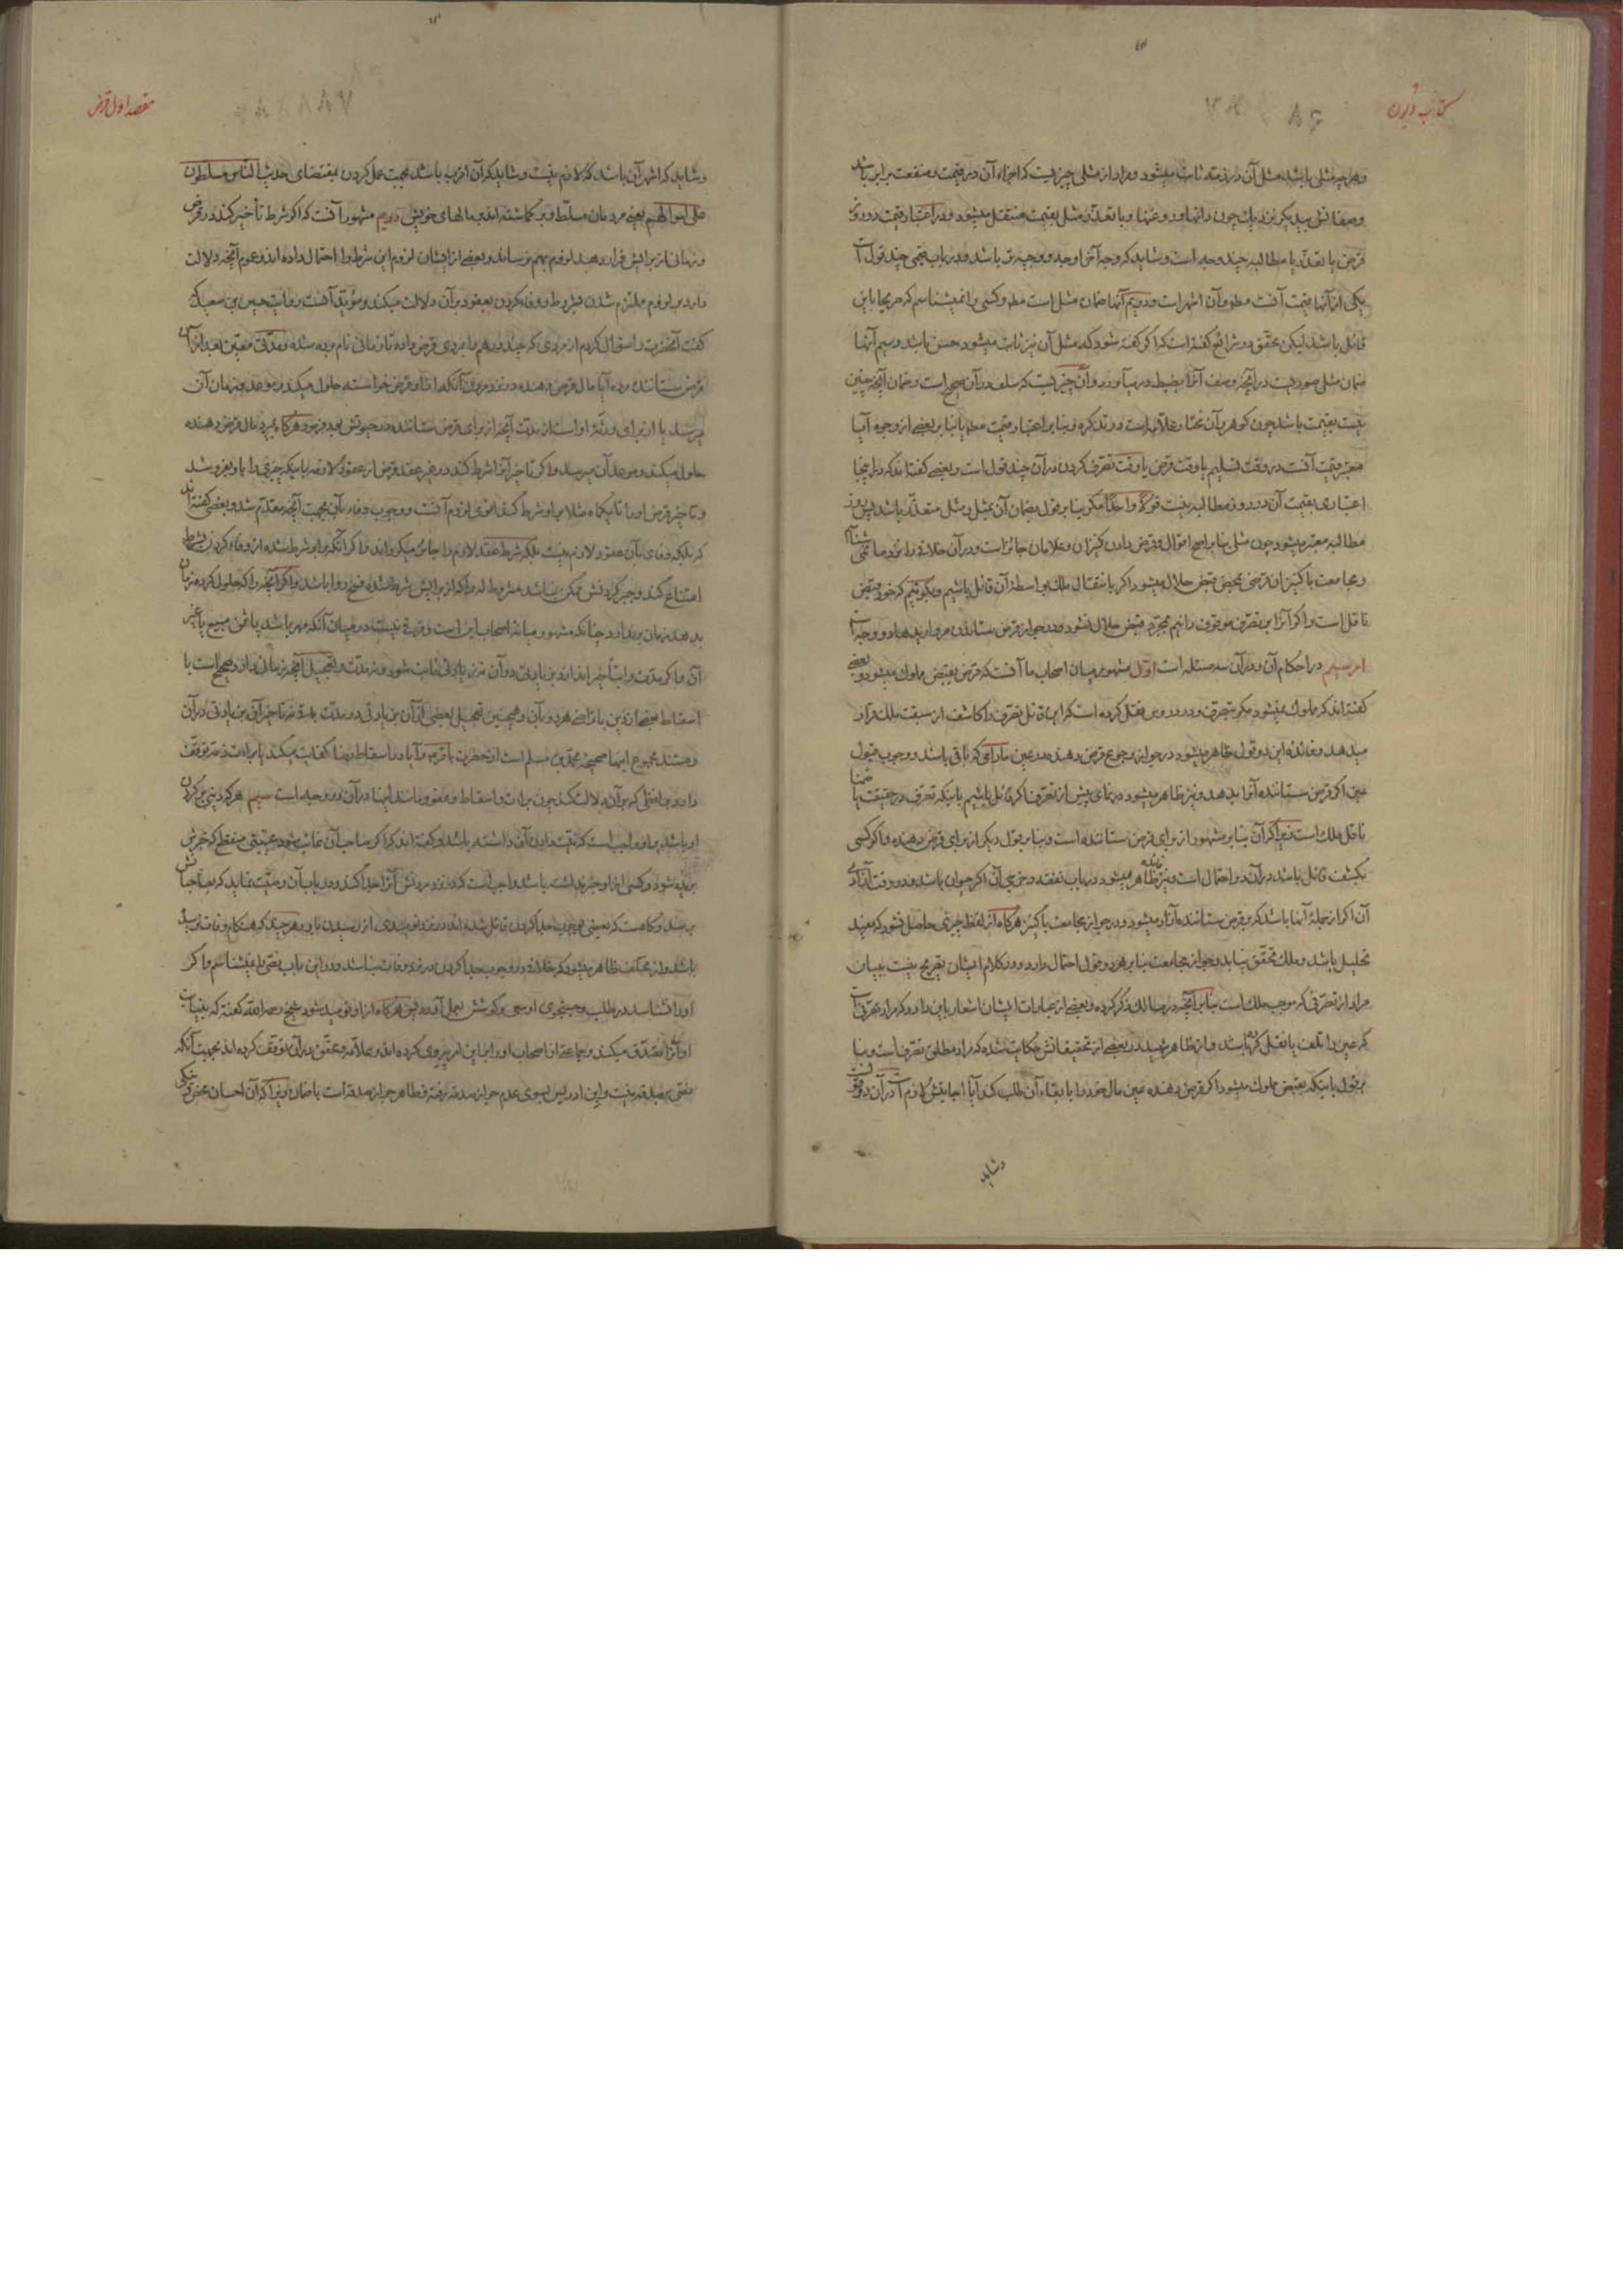 کتاب دیون
وهر چه مثلی باشد مثل آن در ذمه ثابت میشود ومراد از مثلی چیزیست که اجزاء آن در قیمت ومنفعت برابر باشد
وصفاتش بیکدیگر نزدیک چون دانها وروغنها وبا تعذر مثل بقیمت منتقل میشود ودر اعتبار قیمت در روز
قرض یا تعذر یا مطالبه چند وجه است وشاید که وجه آخر اوجه ووجیه‌تر باشد ودر باب قیمی چند قول است
یکی از آنها قیمت آنست مطلقا وآن اشهر است ودویم آنها ضمان مثل است مطلقا وکسی را نمیشناسم که صریحا باین
قائل باشد لیکن محقق در شرائع گفته است که اگر گفته شود که مثل آن نیز ثابت میشود حسن باشد وسیم آنها
ضمان مثل صوریست در آنچه وصف آنرا بضبط در میآورد وآن چیزیست که سلف در آن صحیح است وضمان آنچه چنین
نیست بقیمت باشد چون گوهر وآن مختار علامه است در تذکره وبنا بر اعتبار قیمت مطلقا یا بنا بر بعضی از وجوه آیا
معتبر قیمت آنست در وقت تسلیم یا وقت قرض یا وقت تصرف کردن در آن چند قول است وبعضی گفته‌اند که در اینجا
اعتباری بقیمت آن در روز مطالبه نیست قولا واحدا مگر بنا بر قول بضمان آن بمثل ومثل متعذر باشد پس روز
مطالبه معتبر میشود چون مثلی بنا بر اصح اقوال وقرض دادن کنیزان وغلامان جائز است ودر آن خلافی را نزد ما نمی‌شناسم
ومجامعت با کنیزان قرضی بمحض قبض حلال میشود اگر بانتقال ملک بواسطهٔ آن قائل باشیم وبگوئیم که خود قبض
ناقل است واگر آنرا بر تصرف موقوف دانیم بمجرد قبض حلال نشود ودر جواز قرض ستاندن مرواریدها دو وجه است
امر سیم در احکام آن ودر آن سه مسئله است اول مشهور میان اصحاب ما آنست که قرض بقبض مملوک میشود وبعضی
گفته‌اند که مملوک نمیشود مگر بتصرف ودر دروس نقل کرده است که این قائل تصرف را کاشف از سبقت ملک قرار
میدهد وفائدهٔ این دو قول ظاهر میشود در جواز رجوع قرض دهنده در عین مادامی که باقی باشد ووجوب قبول
عین اگر قرض ستاننده آنرا بدهد ونیز ظاهر میشود در نمای پیش از تصرف اگر قائل باشیم باینکه تصرف در حقیقت یا ضمنا
ناقل ملک است زیرا که آن بنا بر مشهور از برای قرض ستاننده است وبنا بر قول دیگر از برای قرض دهنده واگر کسی
بکشف قائل باشد در آن دو احتمال است ونیز فائده ظاهر میشود در باب نفقه وخرجی آن اگر حیوان باشد ودر وقت آزادی
آن اگر از جملهٔ آنها باشد که بر قرض ستاننده آزاد میشود ودر جواز مجامعت با کنیز هرگاه از لفظ چیزی حاصل نشود که مفید
تحلیل باشد وملک تحقق نیابد وجواز مجامعت بنا بر هر دو قول احتمال دارد ودر کلام ایشان تصریحی نیست ببیان
مراد از تصرفی که موجب ملک است بنا بر آنچه در مسالک ذکر کرده وبعضی از عبارات ایشان اشعار باین دارد که مراد تصرفی است
که عین را تلف یا نقل کرده باشد واز ظاهر شهید در بعضی از تحقیقاتش حکایت شده که مراد مطلق تصرف است وبنا
بر قول باینکه بقبض مملوک میشود اگر قرض دهنده عین مال خود را با بقاء آن طلب کند آیا اجابتش لازم است در آن دو قول است
وشاید
مقصد اول قرض
وشاید که اشهر آن باشد که لازم نیست وشاید که آن اقرب باشد بجهت عمل کردن بمقتضای حدیث الناس مسلطون
علی اموالهم یعنی مردمان مسلط وبر گماشته‌اند بمالهای خویش دویم مشهور آنست که اگر شرط تأخیر کند در قرض
وزمانی از برایش قرار دهد لزوم بهم نرساند وبعضی از ایشان لزوم این شرط را احتمال داده‌اند وعموم آنچه دلالت
دارد بر لزوم ملتزم شدن بشروط ووفاء کردن بعقود بر آن دلالت میکند ومؤید آنست روایت حسین بن سعید که
گفت آنحضرت را سؤال کردم از مردی که چند درهم را بمردی قرض داده تا زمانی نام برده شده ومدتی معین بعد از آن
قرض ستاننده مرده آیا مال قرض دهنده در نزد مردن آنکه از او قرض خواسته حلول میکند وموعد وزمان آن
میرسد یا از برای ورثهٔ او است از مدت آنچه از برای قرض ستاننده در حیوتش بود فرمود هرگاه بمیرد مال قرض دهنده
حلول میکند وموعد آن میرسد واگر تأخیر آنرا شرط کند در غیر عقد قرض از عقود لازمه باینکه چیزی را باو بفروشد
وتأخیر قرض او را تا یکماه مثلا بر او شرط کند اقوی لزوم آنست ووجوب وفاء بآن بجهت آنچه مقدم شد وبعضی گفته‌اند
که بلکه وفای بآن عقود لازم نیست بلکه شرط عقد لازم را جائز میگرداند واگر آنکه بر او شرط شده از وفاء کردن بشرط
امتناع کند وجبر کردنش ممکن نباشد مشروط له را که از برایش شرط شده فسخ روا باشد واگر آنچه را که حلول کرده زمان
بدهد زمان برندارد چنانکه مشهور میانهٔ اصحاب این است وفرقی نیست در میان آنکه مهر باشد یا ثمن مبیع یا غیر
آن واگر مدت را بتأخیر اندازد بزیادتی در آن نه زیادتی ثابت شود ونه مدت وتعجیل آنچه زمانی دارد صحیح است با
اسقاط بعضی از دین با تراضی هر دو بآن وهمچنین تعجیل بعضی از آن بزیادتی در مدت باقی نه تأخیر آن بزیادتی در آن
ومستند مجموع اینها صحیحهٔ محمد بن مسلم است از حضرت باقر وآیا در اسقاط رضا کفایت میکند یا براءت ذمه توقف
دارد بر لفظی که بر آن دلالت کند چون براءت واسقاط وعفو ومانند اینها در آن دو وجه است سیم هر که دینی بر گردن
او باشد بر او واجب است که نیت دادن آن داشته باشد وگفته‌اند که اگر صاحب آن غائب شود بغیبتی منقطع که خبرش
بریده شود وکسی از او خبر نداشته باشد واجب است که در نزد مردنش آنرا جدا کند ودر باب آن وصیت نماید که بصاحبانش
برسد وگاهست که بعضی بوجوب جدا کردن قائل شده‌اند در نزد نومیدی از رسیدن باو هر چند که هنگام وفات نرسیده
باشد واز مختلف ظاهر میشود که خلاف در وجوب جدا کردن در نزد وفات نباشد ودر این باب نصی را نمیشناسم واگر
او را نشناسد در طلب وجستجوی او سعی وکوشش بعمل آورد پس هرگاه از او نومید شود شیخ رحمه الله گفته که بنیابت
او آنرا تصدق میکند وجماعتی از اصحاب او را باین امر پیروی کرده‌اند وعلامه ومحقق در آن توقف کرده‌اند بجهت آنکه
نصی بر صدقه نیست وابن ادریس بسوی عدم جواز صدقه رفته وظاهر جواز صدقه است با ضمان زیرا که آن احسان محض ونیکی